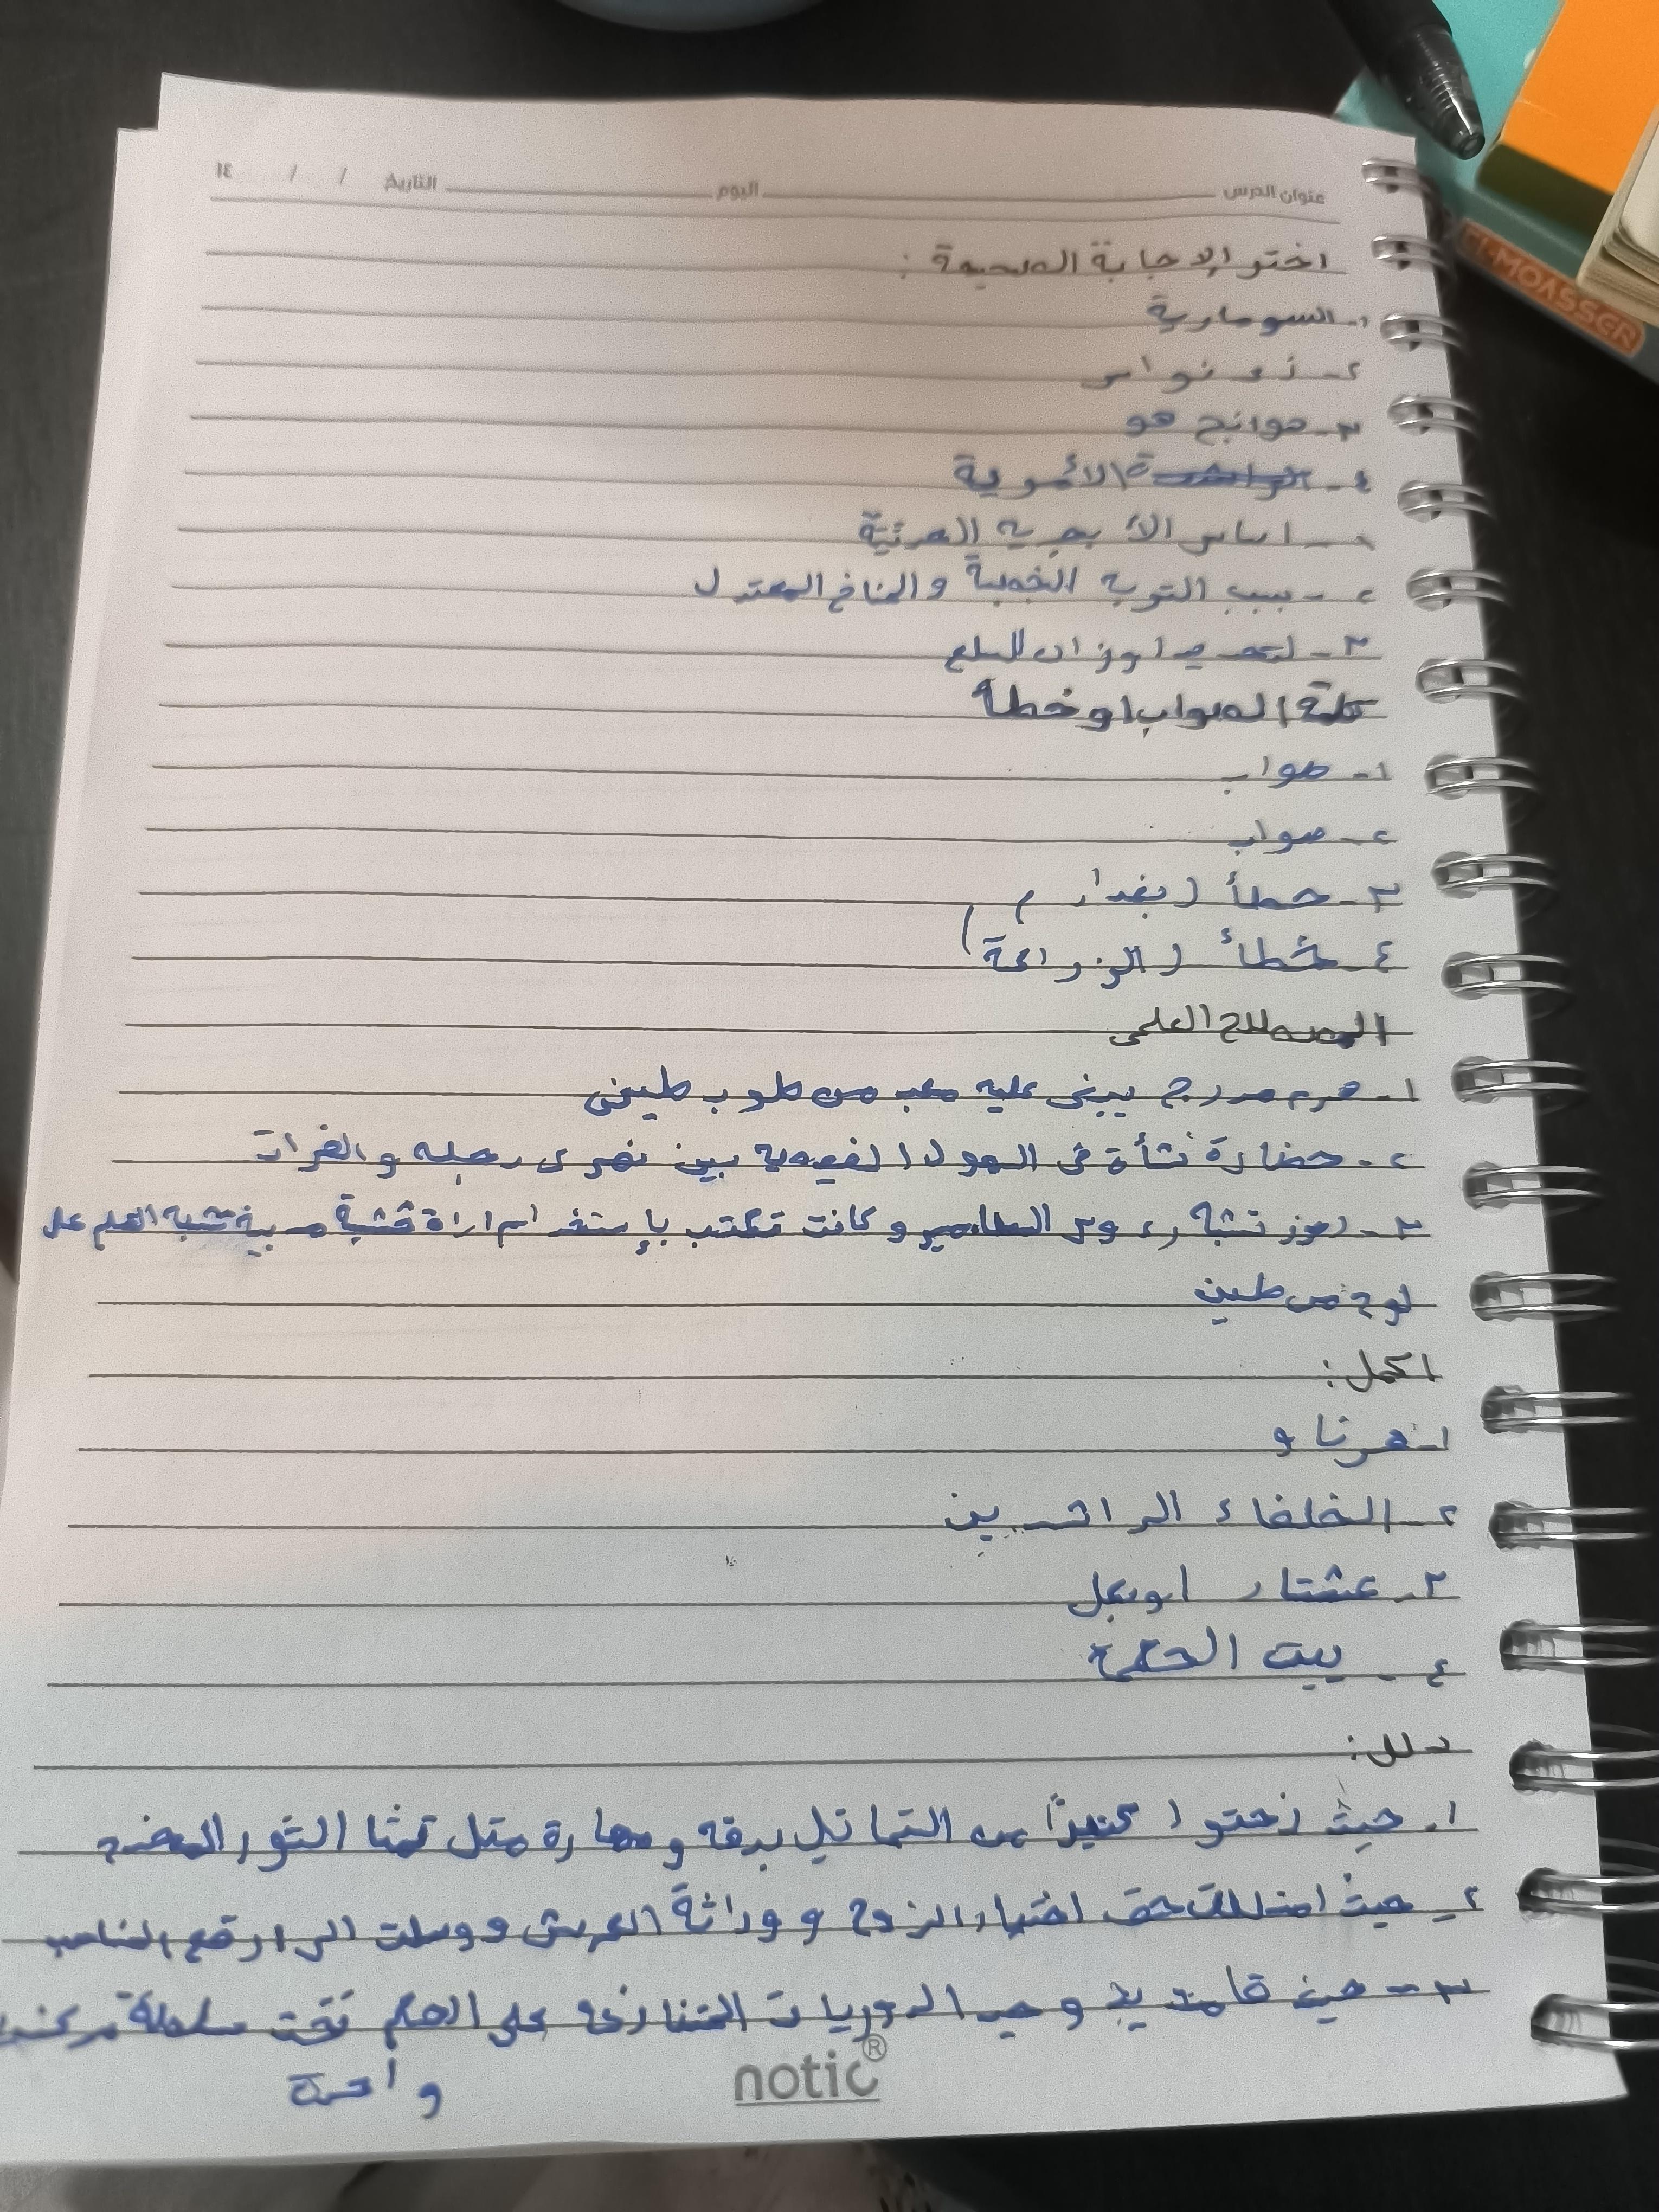 عنوان الدرس اليوم التاريخ / / ١٤
اختر الإجابة الصحيحة :
١- السومارية
٢- ذو نواس
٣- هوانج هو
٤- الأموية
١- اساس الأبجديه الحديثة
٢- بسبب التربه الخصبة والمناخ المعتدل
٣- لتحديد اوزان السلع
كلمة الصواب او خطأ
١- صواب
٢- صواب
٣- خطأ ( بغداد )
٤- خطأ ( الزراعة )
المصطلح العلمى
١- هرم مدرج يبنى عليه معبد من طوب طينى
٢- حضارة نشأة فى السهول الفيضية بين نهرى دجله والفرات
٣- رموز تشبه رءوس المسامير وكانت تكتب بإستخدام اداة خشبة مدببة تشبه القلم على
لوح من طين
اكمل :
١- هرنا و
٢- الخلفاء الراشدين
٣- عشتار
٤- بيت الحكمة
دلل :
١- حيث نحتوا كثيراً من التماثيل بدقه ومهارة مثل تمثا الثور المجنح
٢- حيث حق اختيار الزوج و وراثة العرش و وصلت الى ارقع المناصب
٣- حيث قامت بتوحيد الدويلات المتنازعه على الحكم تحت سلطة مركزية
واحدة
notic®
EL-MOASSER